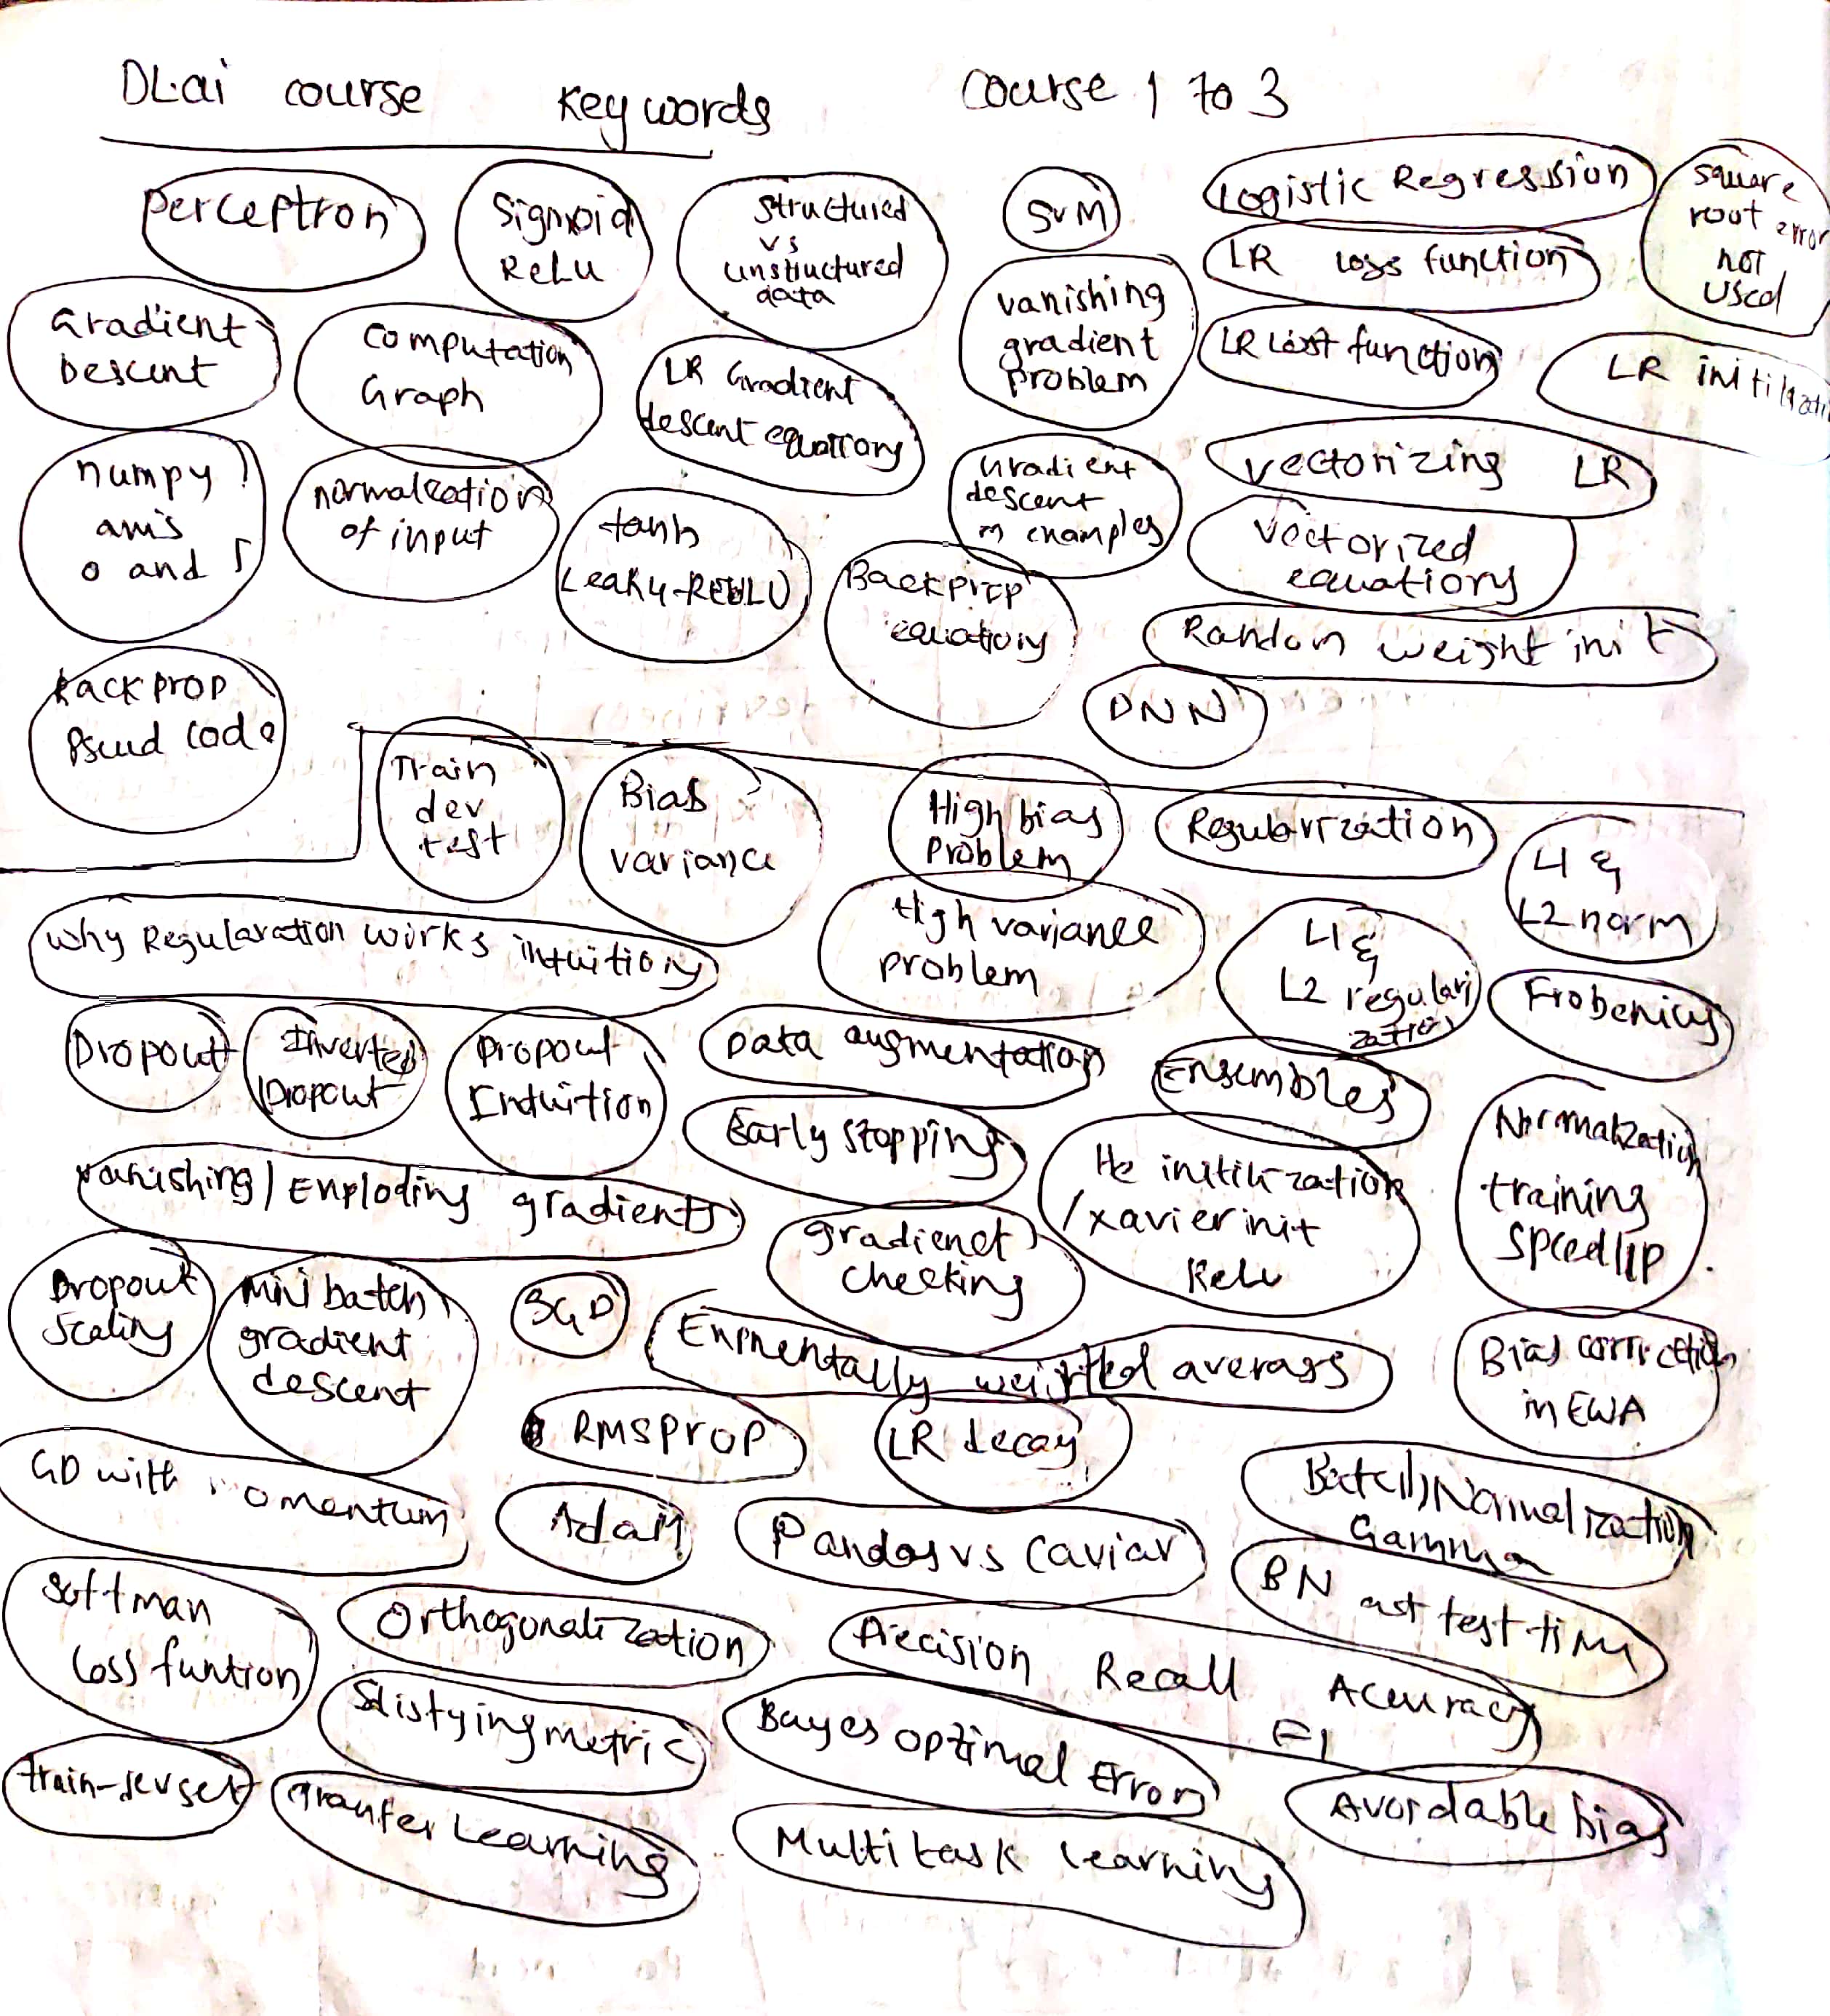 DL.ai course Key words Course 1 to 3
Perceptron
Sigmoid
ReLu
Structured
vs
unstructured
data
SVM
Logistic Regression
square
root error
not
used
LR loss function
Gradient
Descent
Computation
Graph
LR Gradient
descent equations
vanishing
gradient
problem
LR cost function
LR
numpy
axis
0 and 1
normalization
of input
tanh
Leaky-RELU
Gradient
descent
m examples
vectorizing LR
Vectorized
equations
Backprop
equations
Random weight init
Backprop
Pseud code
DNN
Train
dev
test
Bias
variance
High bias
Problem
Regularization
L1 &
L2 norm
why Regularation works intuition
High variance
problem
L1 &
L2 regulari
zation
Frobenius
Dropout
Inverted
Dropout
Dropout
Intuition
Data augmentation
Ensembles
Early stopping
Normalization
training
speedUP
vanishing/Exploding gradients
He initilization
/xavier init
ReLu
gradienet
checking
Dropout
Scaling
Mini batch
gradient
descent
SGD
weighted averags
Bias correction
in EWA
RMSprop
LR decay
GD with momentum
Adam
Pandas vs Caviar
Batch Normalization
Gamma
BN test time
Softmax
Loss funtion
Orthogonalization
Precision Recall Accuracy
F1
Stistying metric
Bayes optimal Error
train-dev set
Tranfer Learning
Multi task learning
Avoidable bias